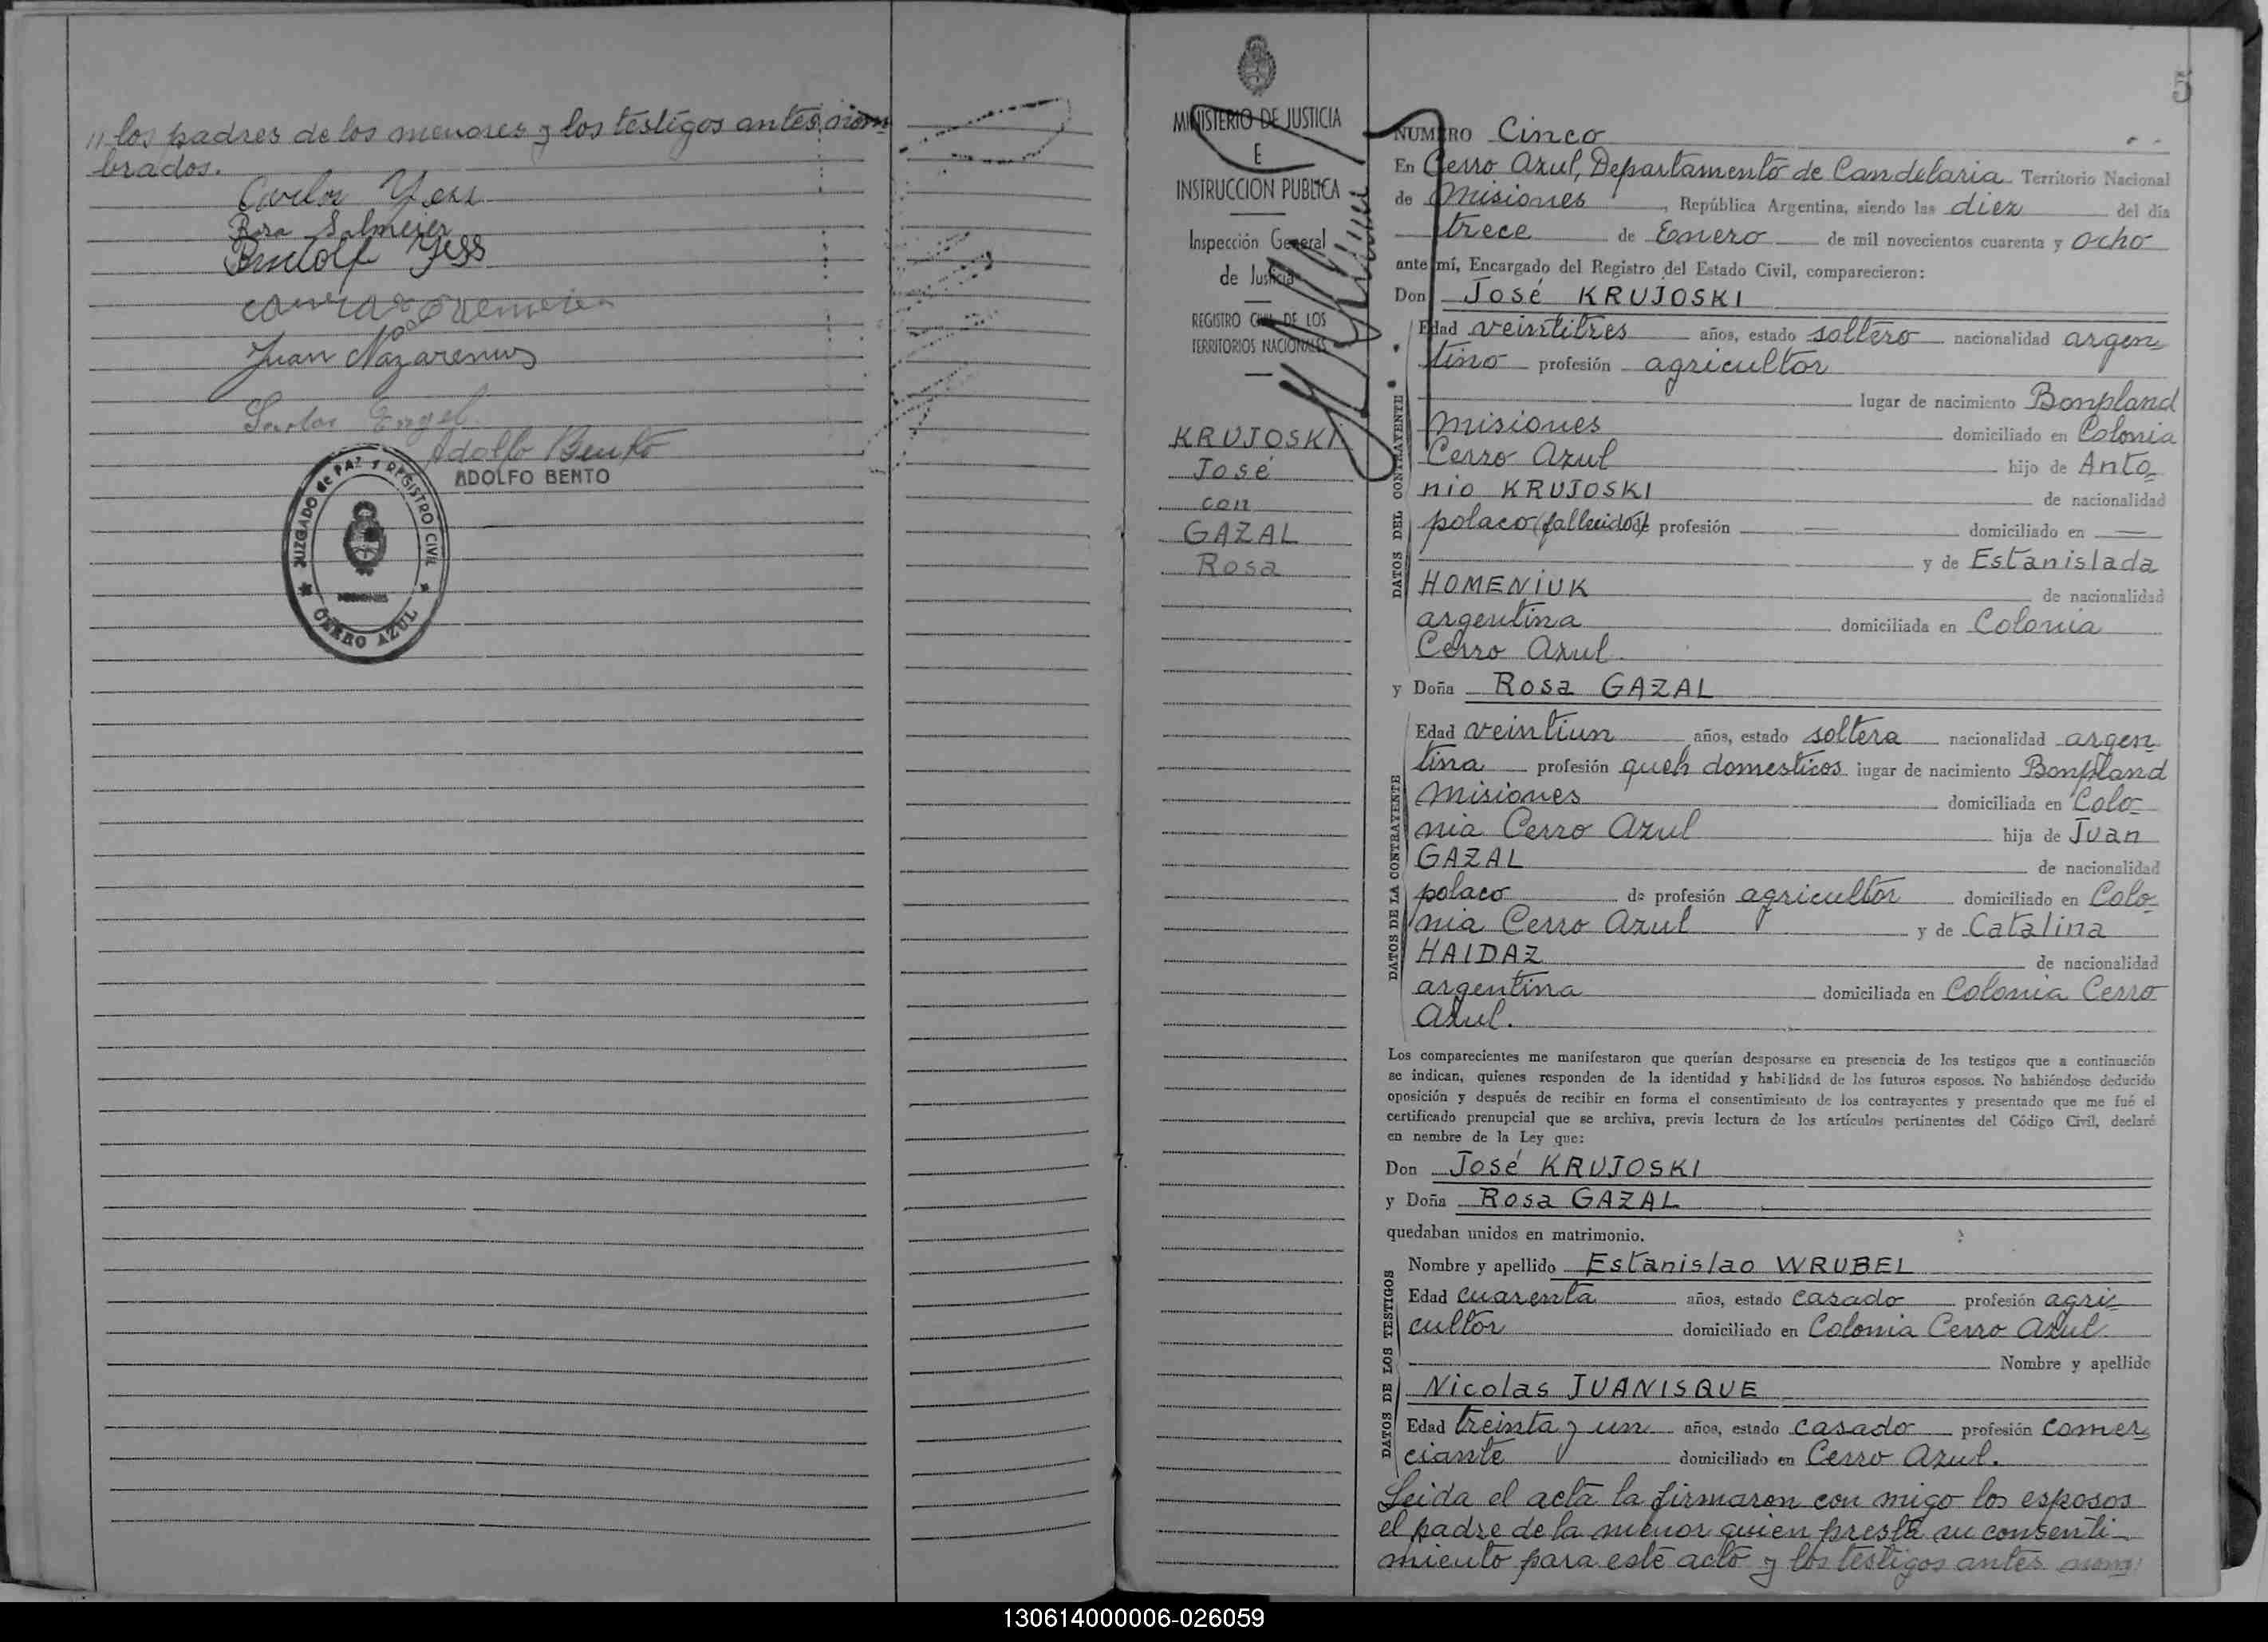 11 los padres de los menores y los testigos antes nom
brados.
Carlos Yess
Rosa Salmeier
Rudolf Yess
Juan Nazarenus
Engel
Adolfo Bento
ADOLFO BENTO
JUZGADO de PAZ Y REGISTRO CIVIL
MISIONES
CERRO AZUL
MINISTERIO DE JUSTICIA
E
INSTRUCCION PUBLICA
Inspección General
de Justicia
REGISTRO CIVIL DE LOS
TERRITORIOS NACIONALES
KRUJOSKI
José
con
GAZAL
Rosa
5
NUMERO Cinco
En Cerro Azul, Departamento de Candelaria Territorio Nacional
de Misiones, República Argentina, siendo las diez del día
trece de Enero de mil novecientos cuarenta y ocho
ante mí, Encargado del Registro del Estado Civil, comparecieron:
Don José KRUJOSKI
DATOS DEL CONTRAYENTE
Edad veintitres años, estado soltero nacionalidad argen
tino profesión agricultor
lugar de nacimiento Bonpland
Misiones domiciliado en Colonia
Cerro Azul hijo de Anto
nio KRUJOSKI de nacionalidad
polaco (fallecido) de profesión domiciliado en
y de Estanislada
HOMENIUK de nacionalidad
argentina domiciliada en Colonia
Cerro Azul
y Doña Rosa GAZAL
DATOS DE LA CONTRAYENTE
Edad veintiun años, estado soltera nacionalidad argen
tina profesión queh domesticos lugar de nacimiento Bonpland
Misiones domiciliada en Colo
nia Cerro Azul hija de Juan
GAZAL de nacionalidad
polaco de profesión agricultor domiciliado en Colo
nia Cerro Azul y de Catalina
HAIDAZ de nacionalidad
argentina domiciliada en Colonia Cerro
Azul.
Los comparecientes me manifestaron que querían desposarse en presencia de los testigos que a continuación
se indican, quienes responden de la identidad y habilidad de los futuros esposos. No habiéndose deducido
oposición y después de recibir en forma el consentimiento de los contrayentes y presentado que me fué el
certificado prenupcial que se archiva, previa lectura de los artículos pertinentes del Código Civil, declaré
en nembre de la Ley que:
Don José KRUJOSKI
y Doña Rosa GAZAL
quedaban unidos en matrimonio.
DATOS DE LOS TESTIGOS
Nombre y apellido Estanislao WRUBEL
Edad cuarenta años, estado casado profesión agri
cultor domiciliado en Colonia Cerro Azul
Nombre y apellido
Nicolas JUANISQUE
Edad treinta y un años, estado casado profesión comer
ciante domiciliado en Cerro Azul.
Leida el acta la firmaron con migo los esposos
el padre de la menor quien presta su consenti
miento para este acto y los testigos antes nom
130614000006-026059